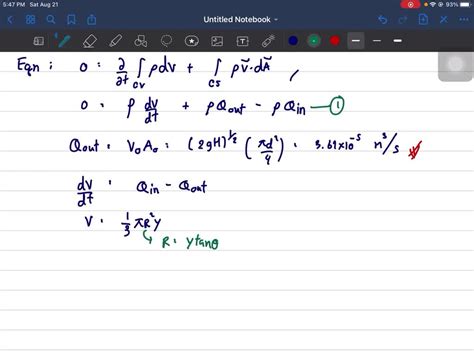 5:47 PM Sat Aug 21
93%
Untitled Notebook
Eqn : 0 = ∂/∂t ∫cv ρdv + ∫cs ρv⃗·dA⃗ ,
0 = ρ dv/dt + ρQout - ρQin — ①
Qout = V₀A₀ = (2gH)^1/2 (πd²/4) = 3.61×10⁻⁵ m³/s
dv/dt = Qin - Qout
V = 1/3 πR²y
R = ytanθ